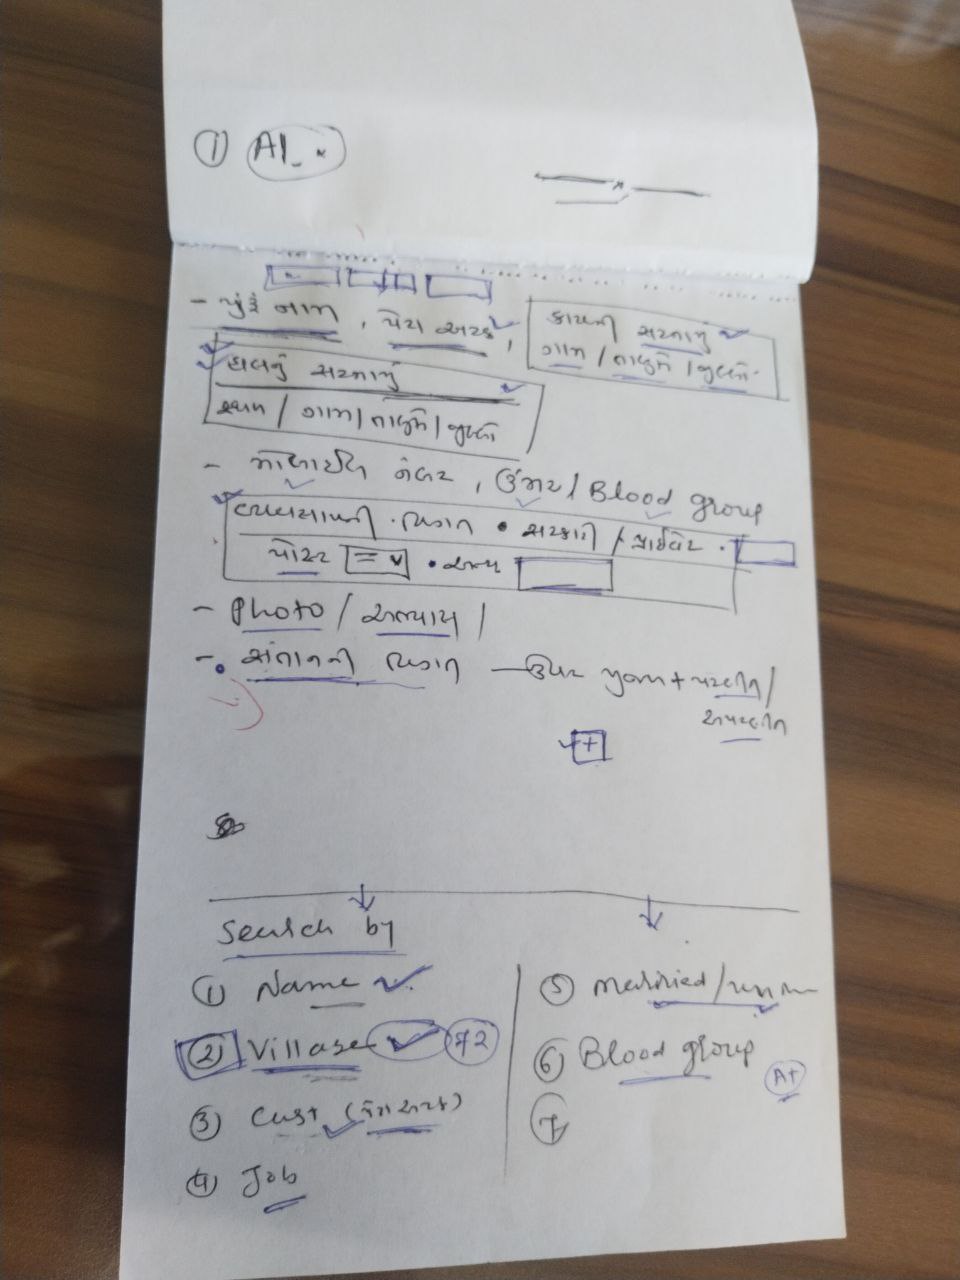 ① A1
- પુરૂ નામ, પેટા અટક,
કાયમી સરનામું
ગામ / તાલુકો / જીલ્લો
હાલનું સરનામું
સ્થળ / ગામ / તાલુકો / જીલ્લો
- મોબાઈલ નંબર, ઉંમર / Blood group
વ્યવસાયની વિગત • સરકારી / પ્રાઈવેટ •
• અન્ય
- Photo / અભ્યાસ /
- સંતાનની વિગત — ઉપર મુજબ + પરણીત /
અપરણીત
+
Search by
① Name
② Village 72
③ Cast (પેટા અટક)
④ Job
⑤ Married /
⑥ Blood group
A+
⑦